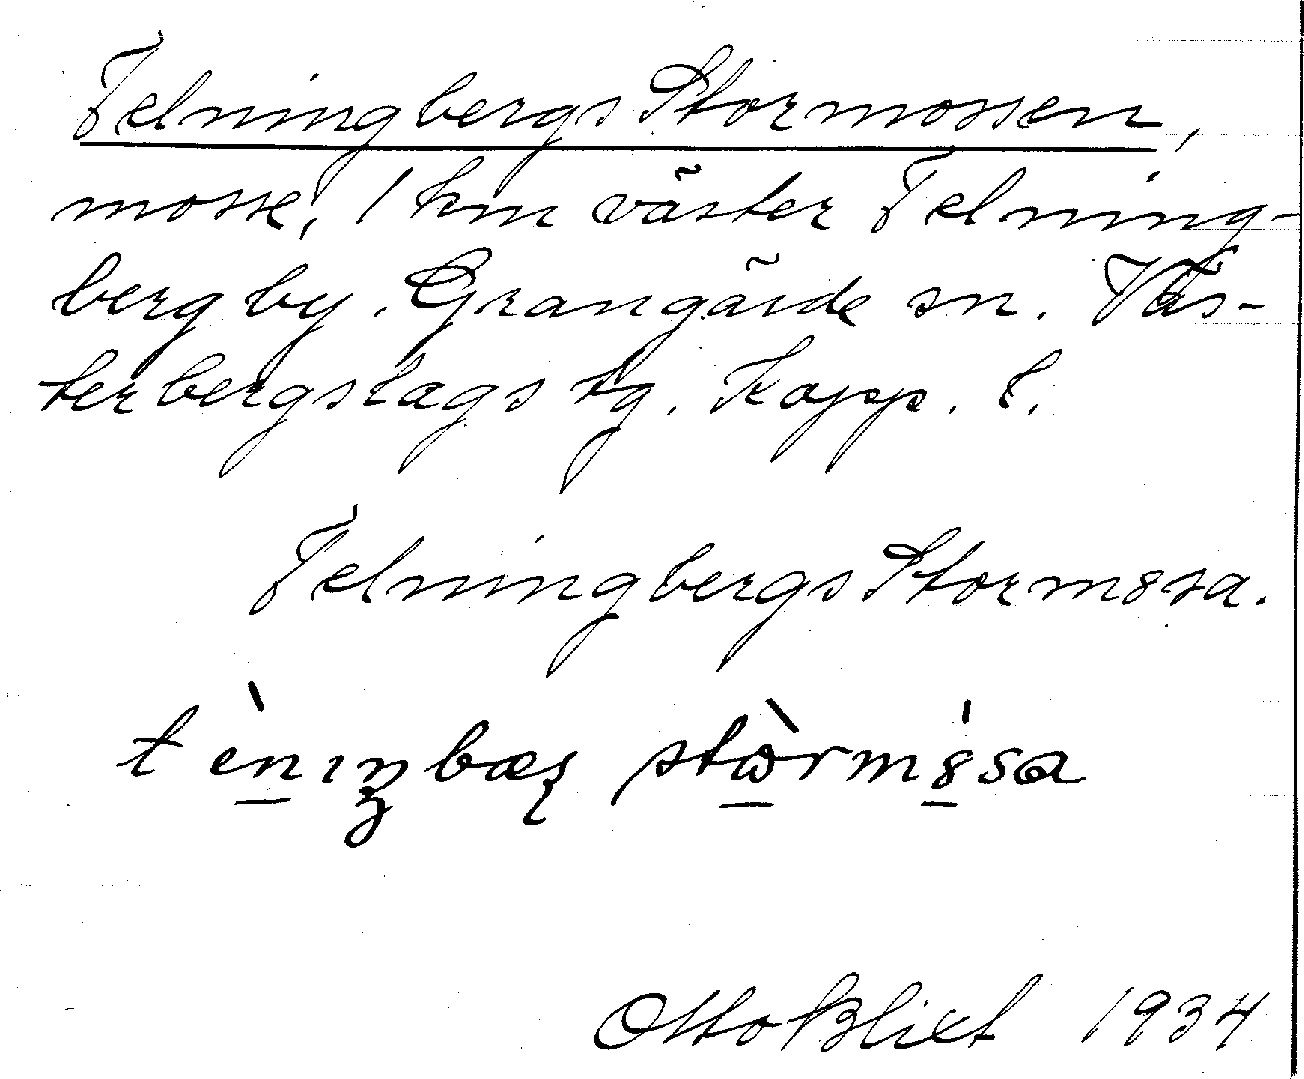 Telningbergs Stormossen,
mosse, 1 km väster Telning-
berg by. Grangärde sn. Väs-
terbergslags tg. Kopp. l.
Telningbergs Stormåssa.
Otto Blixt 1934